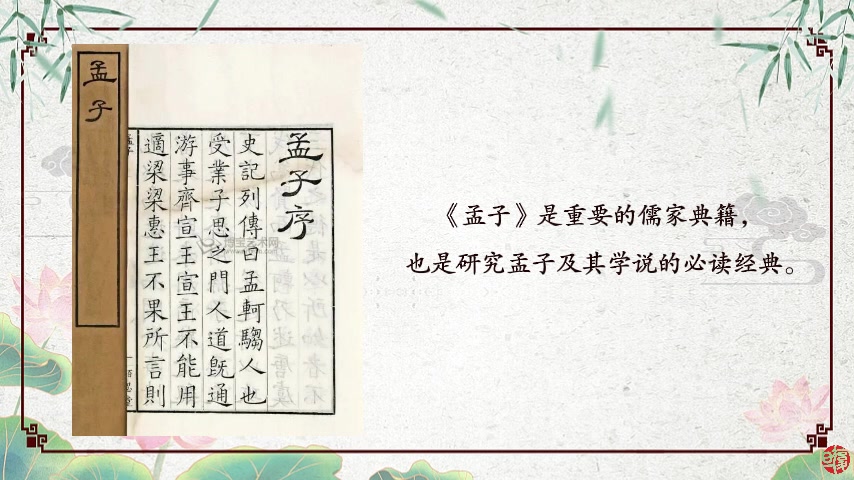 孟子
孟子序
史記列傳曰孟軻騶人也
受業子思之門人道旣通
游事齊宣王宣王不能用
適梁梁惠王不果所言則
《孟子》是重要的儒家典籍，
也是研究孟子及其学说的必读经典。